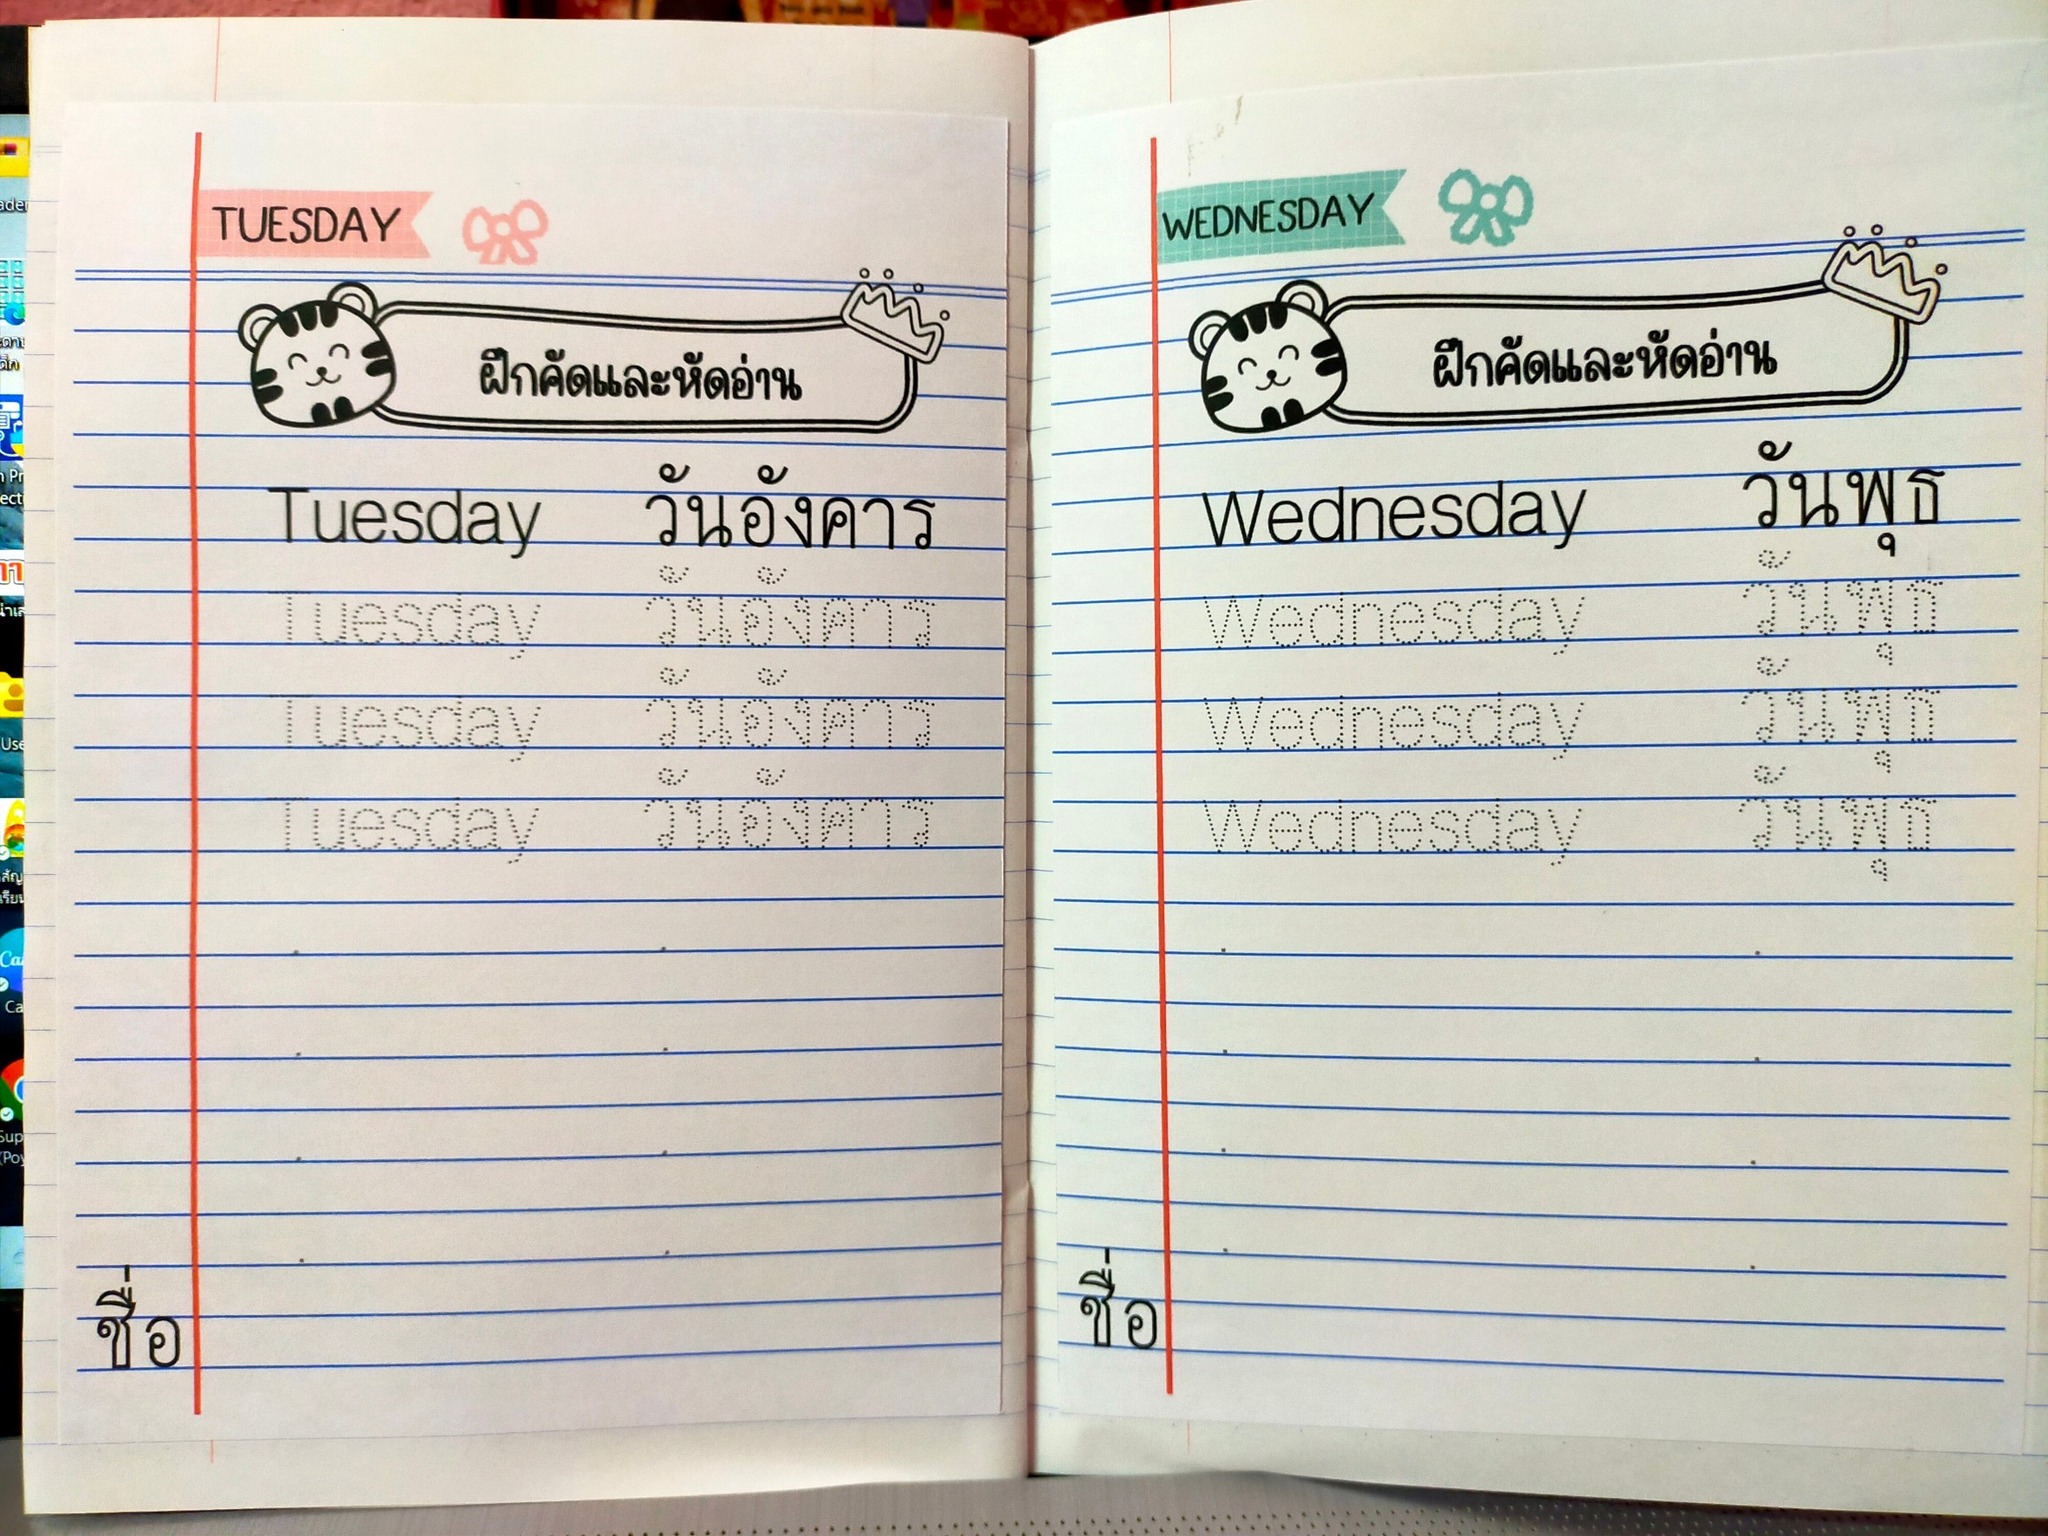 TUESDAY
ฝึกคัดและหัดอ่าน
Tuesday วันอังคาร
Tuesday วันอังคาร
Tuesday วันอังคาร
Tuesday วันอังคาร
ชื่อ
WEDNESDAY
ฝึกคัดและหัดอ่าน
Wednesday วันพุธ
Wednesday วันพุธ
Wednesday วันพุธ
Wednesday วันพุธ
ชื่อ